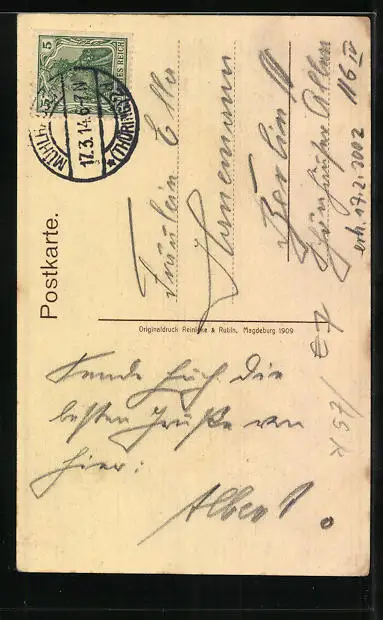 Postkarte.
5
DEUTSCHES REICH
MÜHLH
17.3.14.6-7N
* (THÜRINGEN)
Fräulein Ella
Berlin
Schönhauser Allee
116 IV
erh. 17.2.2002
€7
Originaldruck Reinicke & Rubin, Magdeburg 1909
Sende Euch die
besten Grüße von
hier:
Albert.